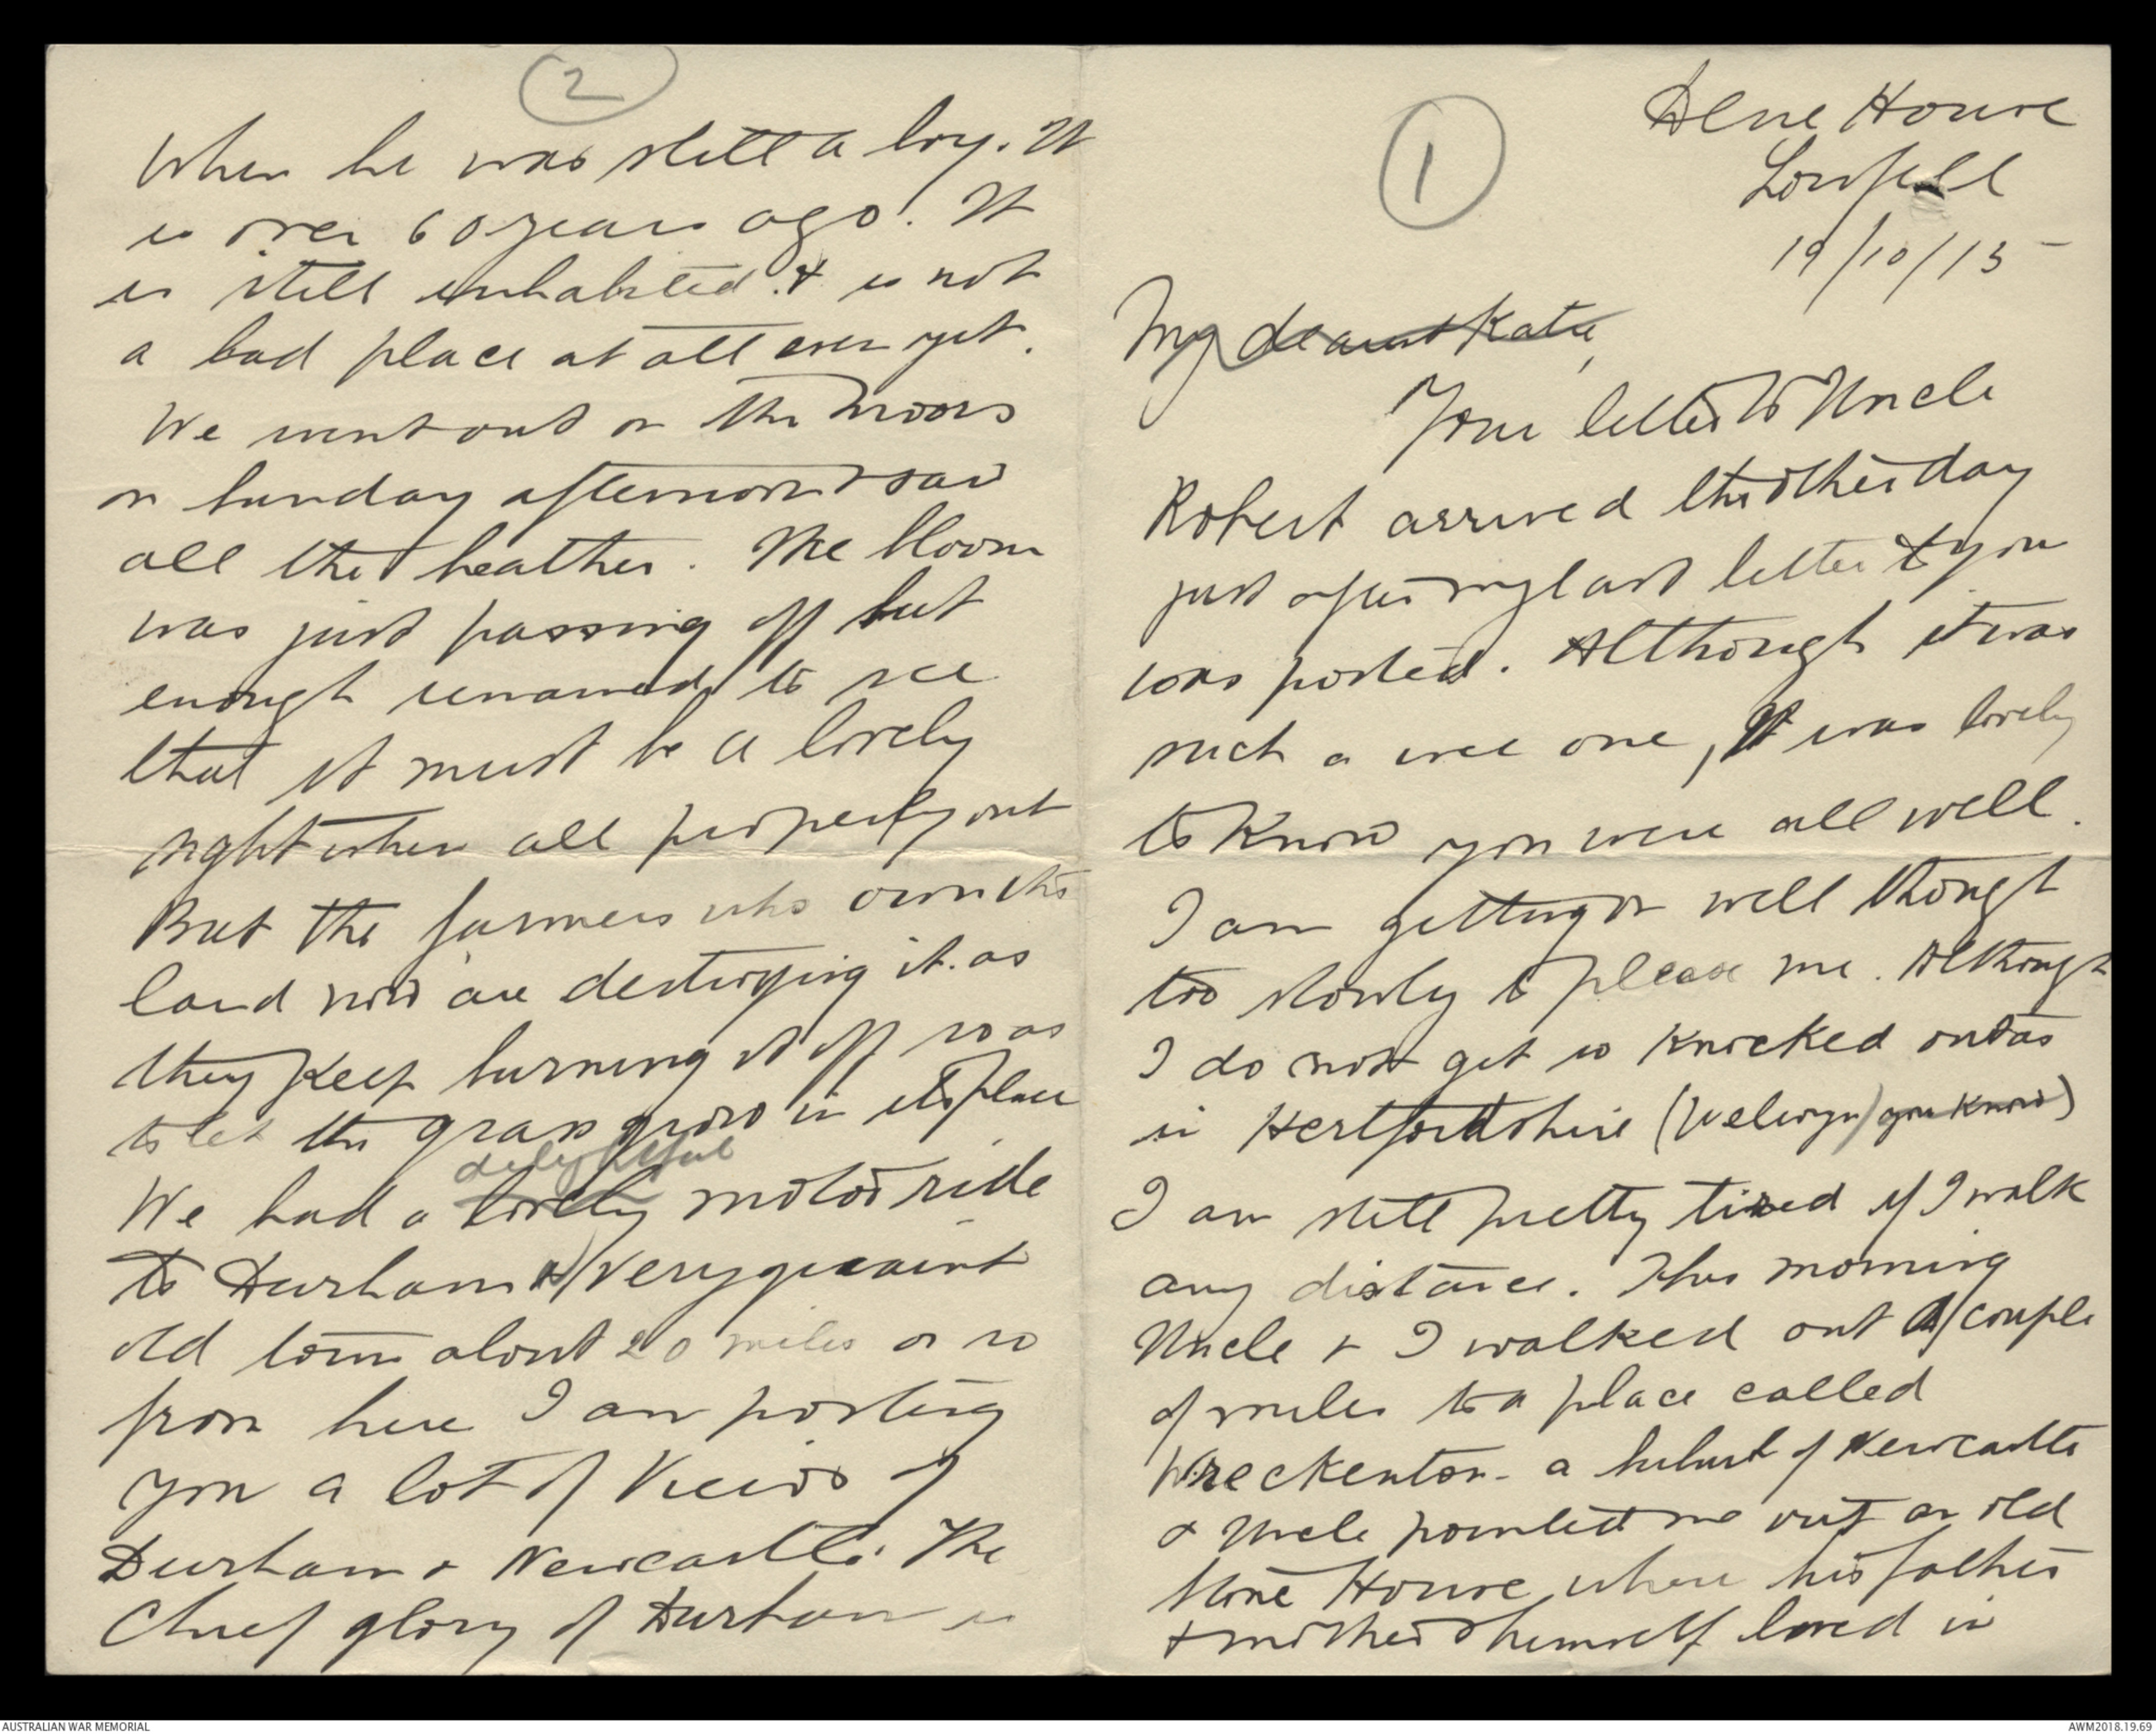 1
Dene House
Lowfell
19/10/15
My dearest Katie,
Your letter to Uncle
Robert arrived the other day
just after my last letter to you
was posted. Although it was
such a wee one, it was lovely
to know you were all well.
I am getting on well though
too slowly to please me. Although
I do not get so knocked out as
in Hertfordshire (Welwyn) you know)
I am still pretty tired if I walk
any distance. This morning
Uncle & I walked out a couple
of miles to a place called
Wreckenton - a suburb of Newcastle
& Uncle pointed me out an old
stone House where his father
& mother & himself lived in
2
when he was still a boy. It
is over 60 years ago. It
is still inhabited & is not
a bad place at all even yet.
We went out on the moors
on Sunday afternoon & saw
all the heather. The bloom
was just passing off but
enough remained to see
that it must be a lovely
sight when all properly out
But the farmers who own the
land now are destroying it as
they keep burning it off so as
to let the grass grow in its place
delightful
We had a lovely motor ride
to Durham a very quaint
old town about 20 miles or so
from here I am posting
you a lot of Views of
Durham & Newcastle. The
Chief glory of Durham is
AUSTRALIAN WAR MEMORIAL
AWM2018.19.69